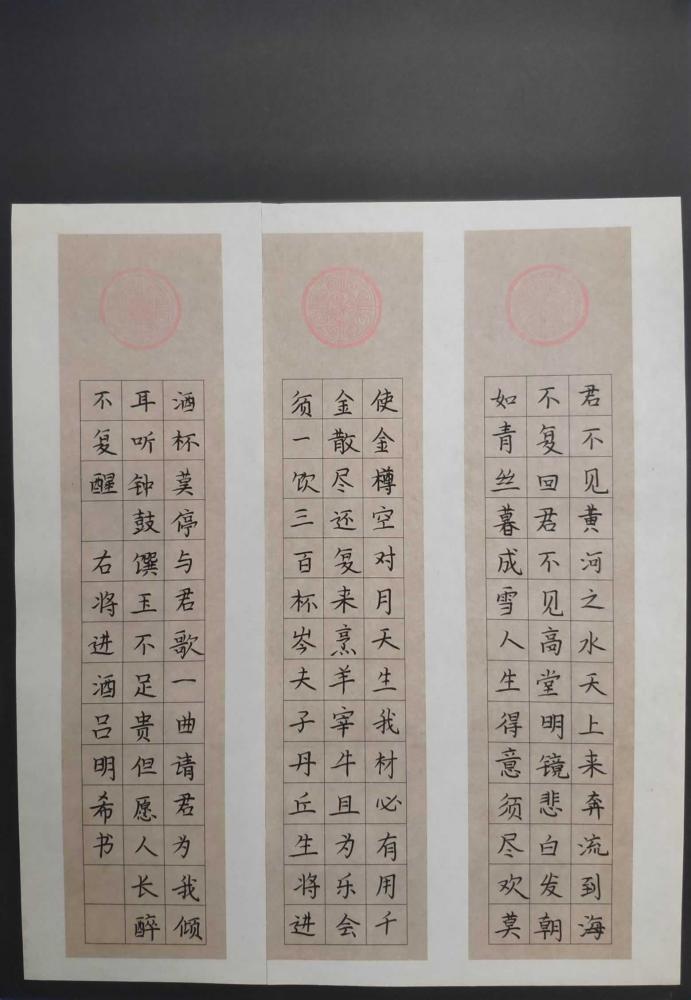 君不见黄河之水天上来奔流到海
不复回君不见高堂明镜悲白发朝
如青丝暮成雪人生得意须尽欢莫
使金樽空对月天生我材必有用千
金散尽还复来烹羊宰牛且为乐会
须一饮三百杯岑夫子丹丘生将进
酒杯莫停与君歌一曲请君为我倾
耳听钟鼓馔玉不足贵但愿人长醉
不复醒 右将进酒吕明希书